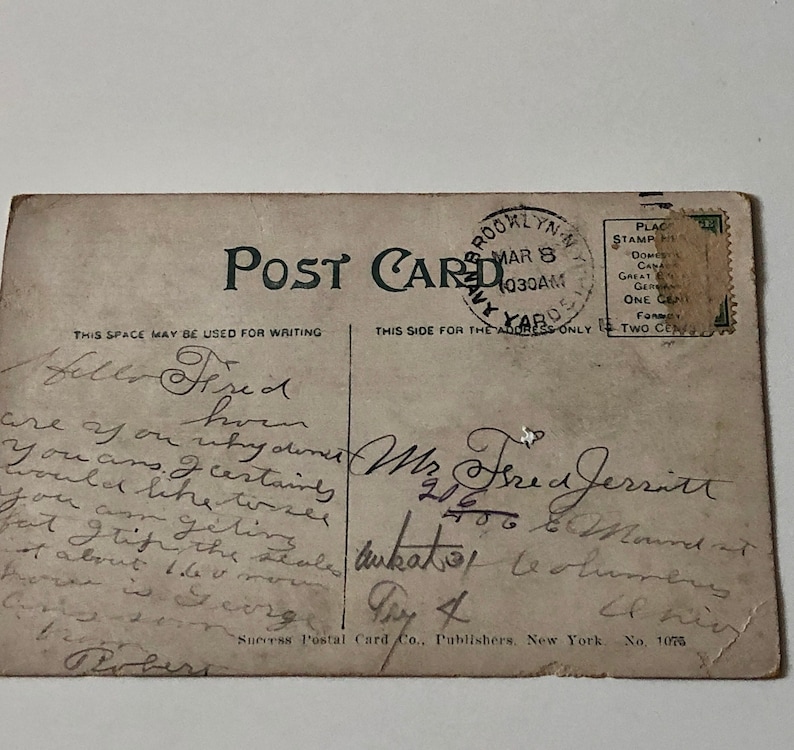 POST CARD
BROOKLYN N.Y.
MAR 8
1030AM
NAVY YARD STA
PLACE
STAMP
DOMESTIC
CANADA
GREAT
GERMANY
ONE CENT
FOREIGN
TWO CENTS
THIS SPACE MAY BE USED FOR WRITING
THIS SIDE FOR THE ADDRESS ONLY
Hello Fred
how
are you why dont
you ans. I certainly
would like to see
you am geting
fat I tip the scales
at about 160 now
how is George
ans soon
from
Robert
Mr Fred Jerratt
206
406 E Mound st
Columbus
Ohio
Try 4
Success Postal Card Co., Publishers, New York. No. 1075